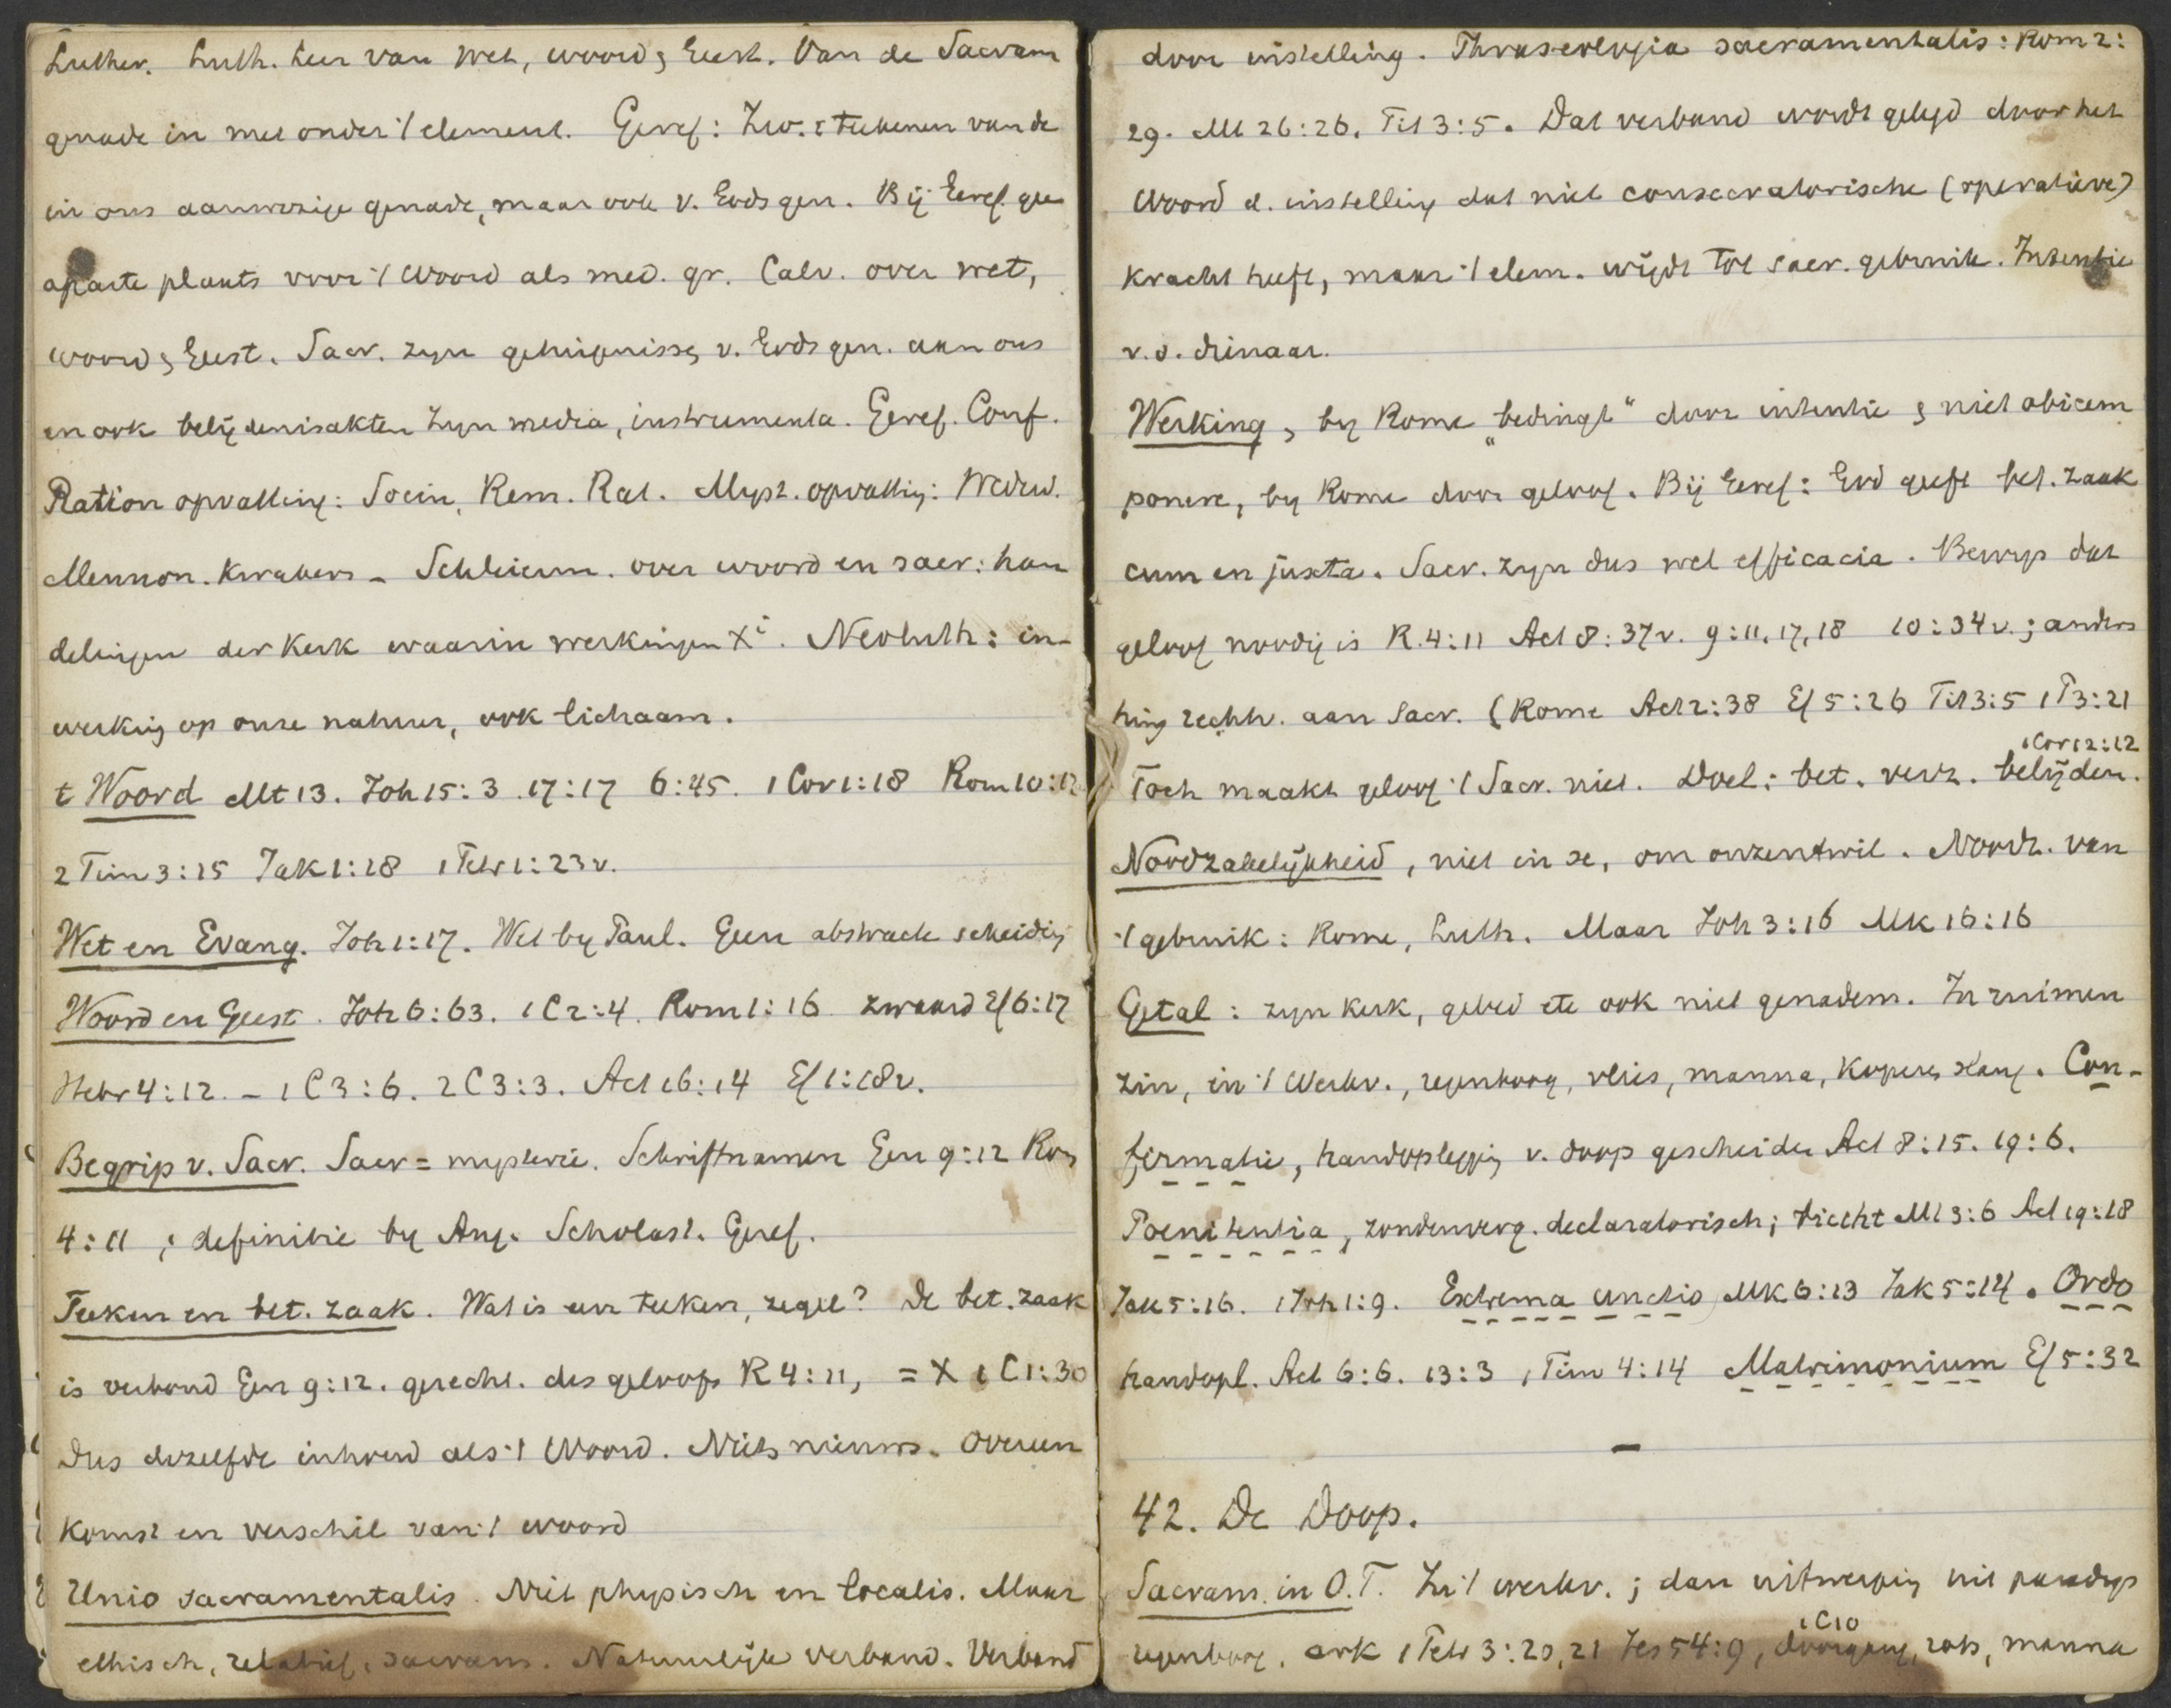 Luther. Luth. leer van wet, woord, Geest. Van de Sacram
genade in met onder 't element. Geref: Zw.: teekenen van de
in ons aanwezige genade, maar ook v. Gods gen. Bij Geref. gee
aparte plaats voor 't Woord als med. gr. Calv. over wet,
woord, Geest. Sacr. zyn getuigenisse, v. Gods gen. aan ons
en ook belijdenisakten zyn media, instrumenta. Geref. Conf.
Ration opvatting: Socin, Rem. Rat. Myst. opvatting: Wederd.
Mennon. Kwakers - Schleierm. over woord en sacr: han
delingen der Kerk waarin werkingen Xi. Neoluth: in-
werking op onze natuur, ook lichaam.
t Woord Mt 13. Joh 15:3. 17:17 6:45. 1 Cor 1:18 Rom 10:17
2 Tim 3:15 Jak 1:18 1 Petr 1:23v.
Wet en Evang. Joh 1:17. Wet by Paul. Geen abstracte scheiding
Woord en Geest. Joh 6:63. 1 C 2:4. Rom 1:16 zwaard Ef 6:17
Hebr 4:12. - 1 C 3:6. 2 C 3:3. Act 16:14 Ef 1:18v.
Begrip v. Sacr. Sacr = mysterie. Schriftnamen Gen 9:12 Rom
4:11; definitie by Aug. Scholast. Geref.
Teeken en bet. zaak. Wat is een teeken, zegel? De bet. zaak
is verbond Gen 9:12. gerecht. des geloofs R 4:11, = X 1 C 1:30
Dus dezelfde inhoud als 't Woord. Niets nieuws. Overeen
komst en verschil van 't woord
Unio sacramentalis. Niet physisch en localis. Maar
ethisch, relatief, sacram. Natuurlijk verband. Verband
door instelling. Phraseologia sacramentalis: Rom 2:
29. Mt 26:26. Tit 3:5. Dat verband wordt gelegd door het
Woord d. instelling dat niet consecratorische (operatieve)
kracht heeft, maar 't elem. wijdt tot sacr. gebruik. Intentie
v.d. dienaar.
Werking, by Rome "bedingt" door intentie, niet obicem
ponere, by Rome door geloof. Bij Geref: God geeft bet. zaak
cum en juxta. Sacr. zyn dus wel efficacia. Bewys dat
geloof noodig is R. 4:11 Act 8:37v. 9:11,17,18 10:34v.; anders
hing rechtv. aan Sacr. (Rome Act 2:38 Ef 5:26 Tit 3:5 1 P 3:21
1 Cor 12:12
Toch maakt geloof 't Sacr. niet. Doel: bet. verz. belijden.
Noodzakelijkheid, niet in se, om onzentwil. Noodz. van
't gebruik: Rome, Luth. Maar Joh 3:16 Mk 16:16
Getal: zyn kerk, gebed etc ook niet genadem. In ruimen
zin, in 't Werkv., regenboog, vlies, manna, koperen slang. Con-
firmatie, handoplegging v. doop gescheiden Act 8:15. 19:6.
Poenitentia, zondenverg. declaratorisch; biecht Mt 3:6 Act 19:18
Jak 5:16. 1 Joh 1:9. Extrema unctio Mk 6:13 Jak 5:14. Ordo
handopl. Act 6:6. 13:3 1 Tim 4:14 Matrimonium Ef 5:32
—
42. De Doop.
Sacram. in O.T. In 't werkv.; dan uitwerping uit paradys
1 C 10
regenboog, ark 1 Petr 3:20,21 Jes 54:9, doorgang, rots, manna